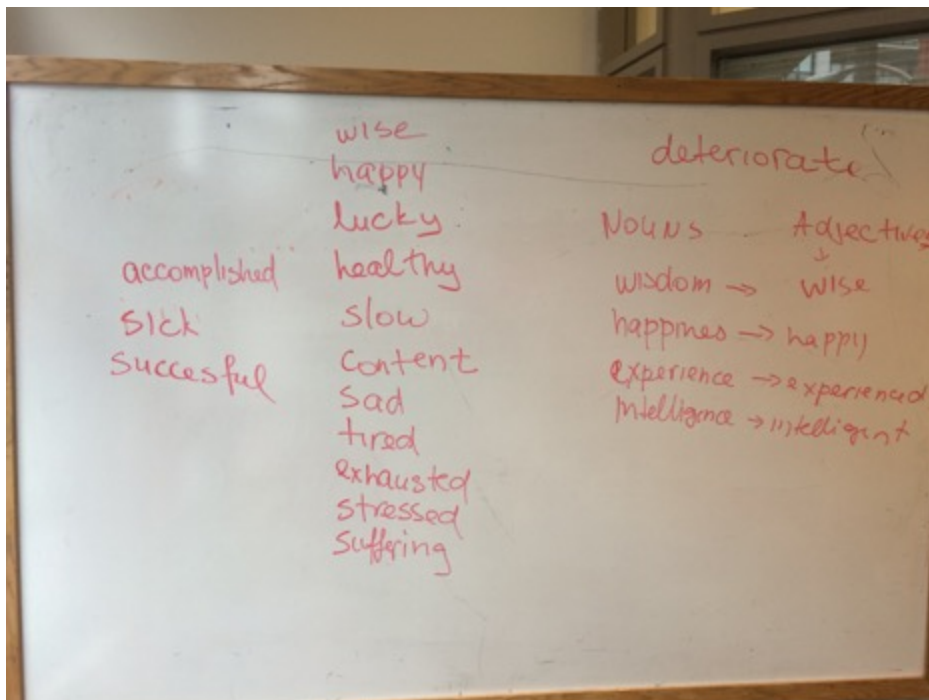 accomplished
sick
succesful
wise
happy
lucky
healthy
slow
content
sad
tired
exhausted
stressed
suffering
deteriorate
Nouns Adjectives
wisdom → wise
happines → happy
experience → experienced
Intelligence → intelligent